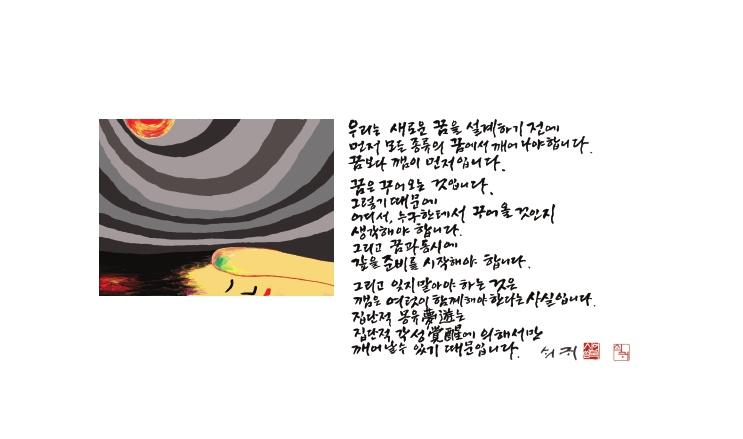 우리는 새로운 꿈을 설계하기 전에
먼저 모든 종류의 꿈에서 깨어나야합니다.
꿈보다 깸이 먼저입니다.
꿈은 꾸어오는 것입니다.
그렇기 때문에
어디서, 누구한테서 꾸어올 것인지
생각해야 합니다.
그리고 꿈과 동시에
갚을 준비를 시작해야 합니다.
그리고 잊지말아야 하는 것은
깸은 여럿이 함께해야 한다는 사실입니다.
집단적 몽유夢遊는
집단적 각성覺醒에 의해서만
깨어날 수 있기 때문입니다. 쇠귀